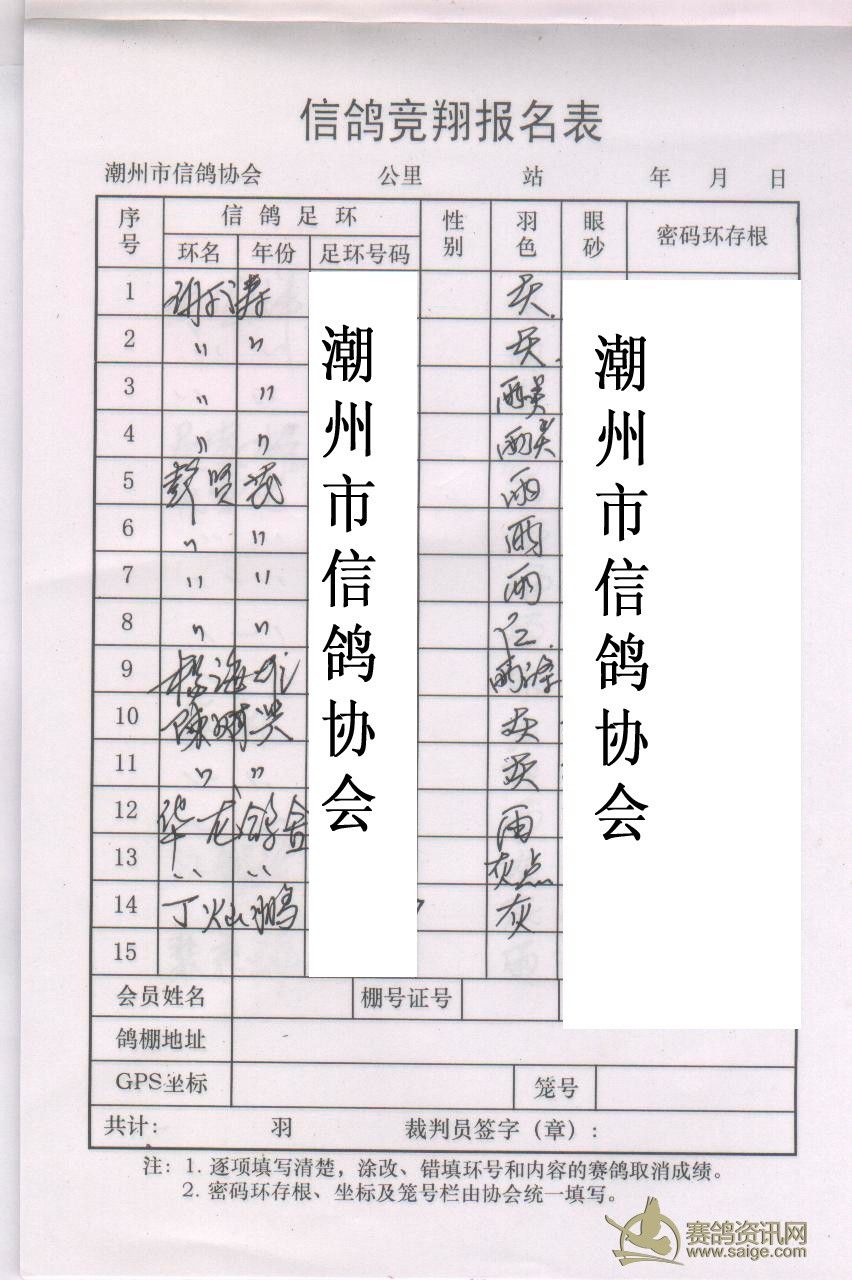 信鸽竞翔报名表
潮州市信鸽协会 公里 站 年 月 日
序号 信鸽足环 性别 羽色 眼砂 密码环存根
环名 年份 足环号码
1 灰
2 〃 〃 灰
3 〃 〃
4 〃 〃
5 雨
6 〃 〃 雨
7 〃 〃 雨
8 〃 〃
9 杨海雄
10 陈炳兴 灰
11 〃 〃 灰
12 华龙鸽舍 雨
13 〃 〃 灰点
14 丁灿鹏 灰
15
潮州市信鸽协会
潮州市信鸽协会
会员姓名 棚号证号
鸽棚地址
GPS坐标 笼号
共计: 羽 裁判员签字(章):
注: 1. 逐项填写清楚,涂改、错填环号和内容的赛鸽取消成绩。
2. 密码环存根、坐标及笼号栏由协会统一填写。
赛鸽资讯网
www.saige.com